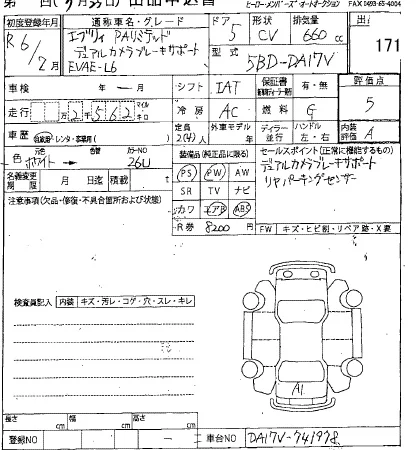 出品申込書 ヒーローメンバーズオートオークション FAX 0493-65-4004
初度登録年月 通称車名・グレード ドア 形状 排気量 出
R6/2月 エブリイ PAリミテッド 5 CV 660cc 171
デュアルカメラブレーキサポート 型式
EVAE-L6 5BD-DA17V
車検 年 月 シフト IAT 保証書 有・無 評価点
走行 万2千562 マイル キロ 冷房 AC 燃料 G 5
車歴 自家用・レンタ・事業用( ) 定員 2(4)人 外車モデル 年 ディラー 並行 ハンドル 左・右 内装評価 A
色 元色 ホワイト→ 色替 カラーNO 26U 装備品(純正品に限る) セールスポイント(正常に機能するもの)
名義変更期限 月 日迄 積載 t PS PW AW デュアルカメラブレーキサポート
注意事項(欠品・修復・不具合箇所および状態) SR TV ナビ リヤパーキングセンサー
カワ エアB ABS
R券 8200円 FW キズ・ヒビ割・リペア跡・X要
検査員記入 内装 キズ・汚レ・コゲ・穴・スレ・キレ
A1
長さ cm 幅 cm 高さ cm
登録NO ー 車台NO DA17V-741978